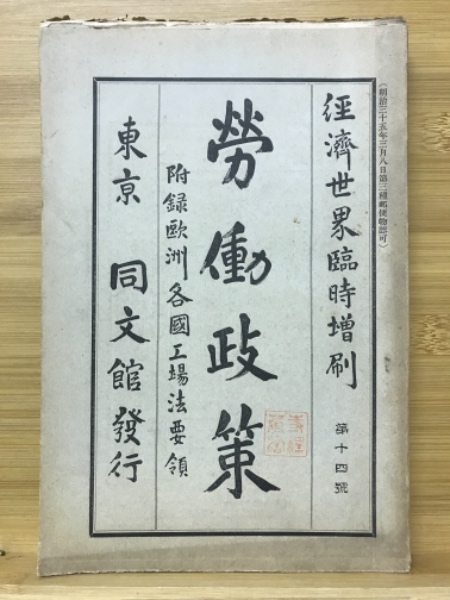 (明治三十五年三月八日第三種郵便物認可)
經濟世界臨時增刷
第十四號
勞働政策
附録歐洲各國工場法要領
東京 同文館發行